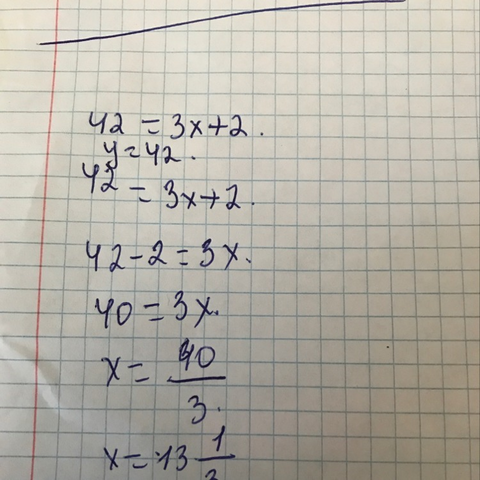 42 = 3x+2.
y=42.
42 = 3x+2.
42-2=3x.
40=3x.
x= 40/3.
x=13 1/3